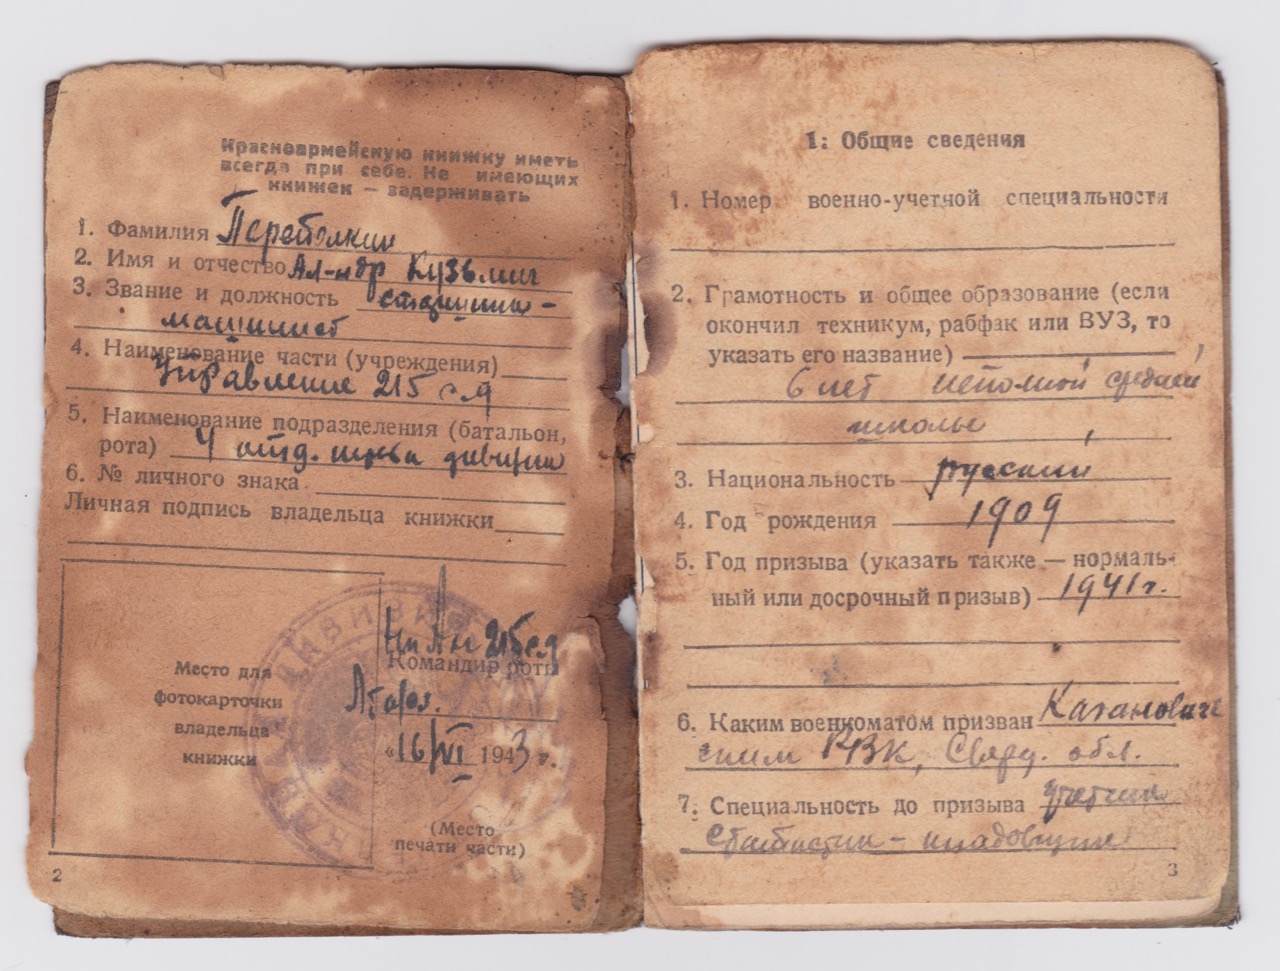 Красноармейскую книжку иметь
всегда при себе. Не имеющих
книжек — задерживать
1. Фамилия
2. Имя и отчество Ал-ндр Кузьмич
3. Звание и должность старшина -
машинист
4. Наименование части (учреждения)
Управление 215 с.д
5. Наименование подразделения (батальон,
рота) 4 отд. штаба дивизии
6. № личного знака
Личная подпись владельца книжки
Место для
фотокарточки
владельца
книжки
215 с.д
Командир роты
«16/VI 1943 г.
(Место
печати части)
2
1: Общие сведения
1. Номер военно-учетной специальности
2. Грамотность и общее образование (если
окончил техникум, рабфак или ВУЗ, то
указать его название)
6 лет неполной средней
школы
3. Национальность русский
4. Год рождения 1909
5. Год призыва (указать также — нормаль-
ный или досрочный призыв) 1941 г.
6. Каким военкоматом призван Кагановиче
ским РВК, Сверд. обл.
7. Специальность до призыва
3